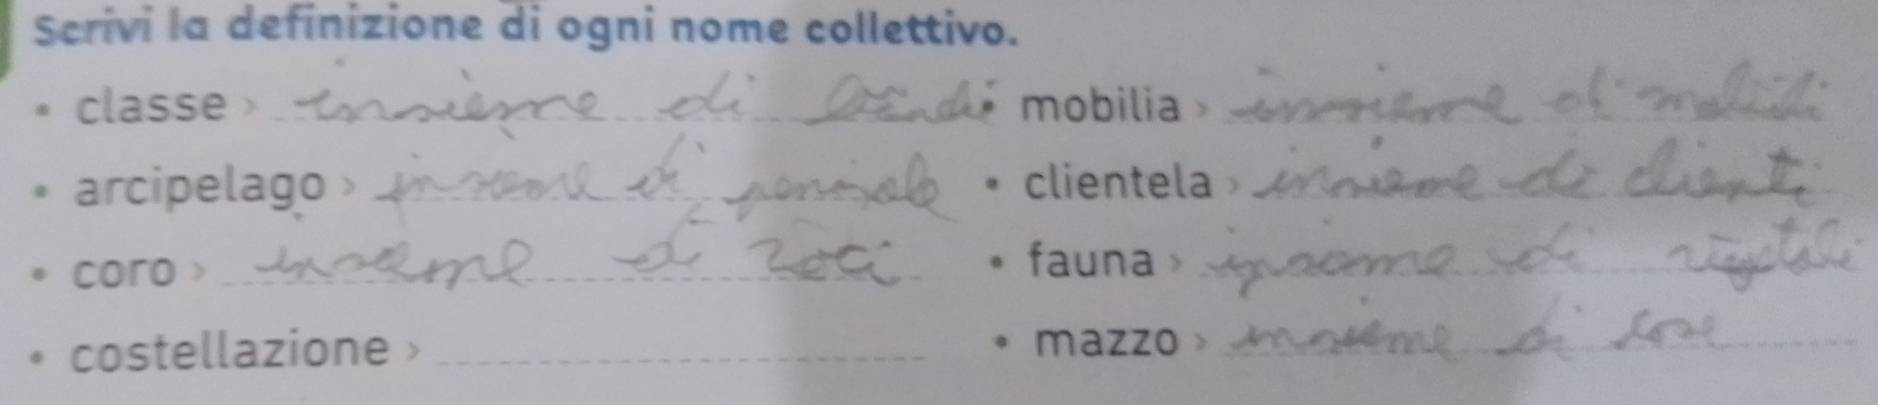 Scrivi la definizione di ogni nome collettivo.
• classe › insieme di • mobilia › insieme di mobili
• arcipelago › insieme di • clientela › insieme di clienti
• coro › insieme di voci • fauna › insieme di vegetali
• costellazione › • mazzo › insieme di cose